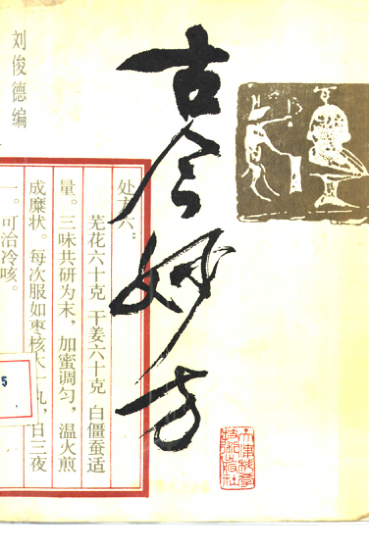 刘俊德编
古今妙方
处方六：
芜花六十克 干姜六十克 白僵蚕适
量。三味共研为末，加蜜调匀，温火煎
成糜状。每次服如枣核大一丸，日三夜
一。可治冷咳。
5